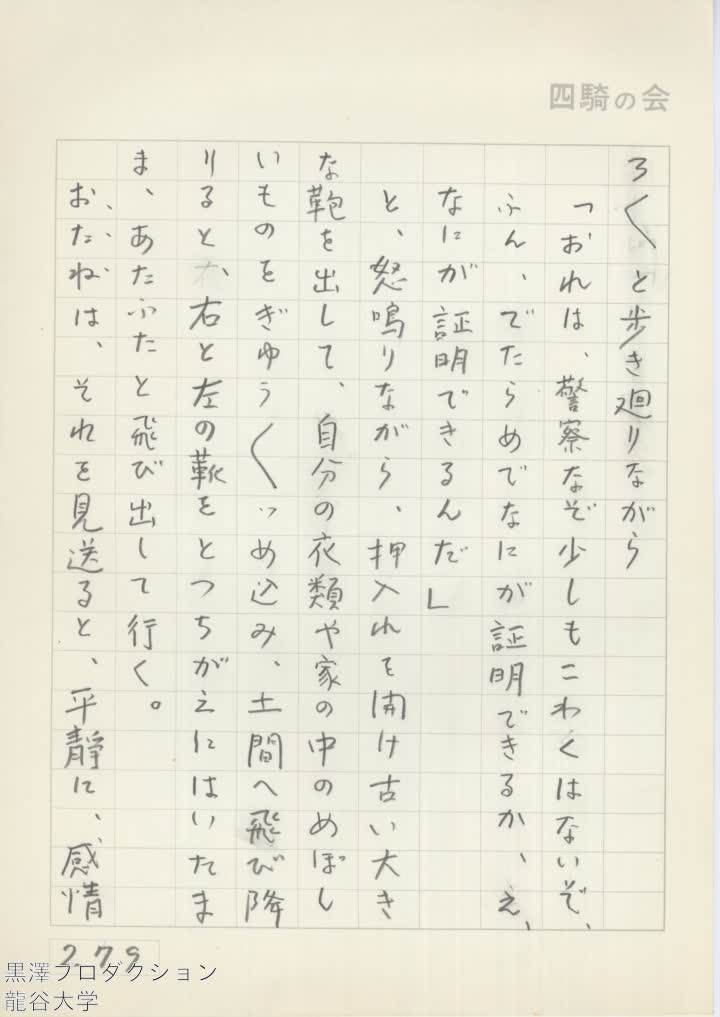 四騎の会
ろ〱と歩き廻りながら
「おれは、警察なぞ少しもこわくはないぞ、
ふん、でたらめでなにが証明できるか、え、
なにが証明できるんだ」
と、怒鳴りながら、押入れを開け古い大き
な鞄を出して、自分の衣類や家の中のめぼし
いものをぎゆう〱つめ込み、土間へ飛び降
りると、右と左の靴をとつちがえにはいたま
ま、あたふたと飛び出して行く。
おたねは、それを見送ると、平静に、感情
279
黒澤プロダクション
龍谷大学